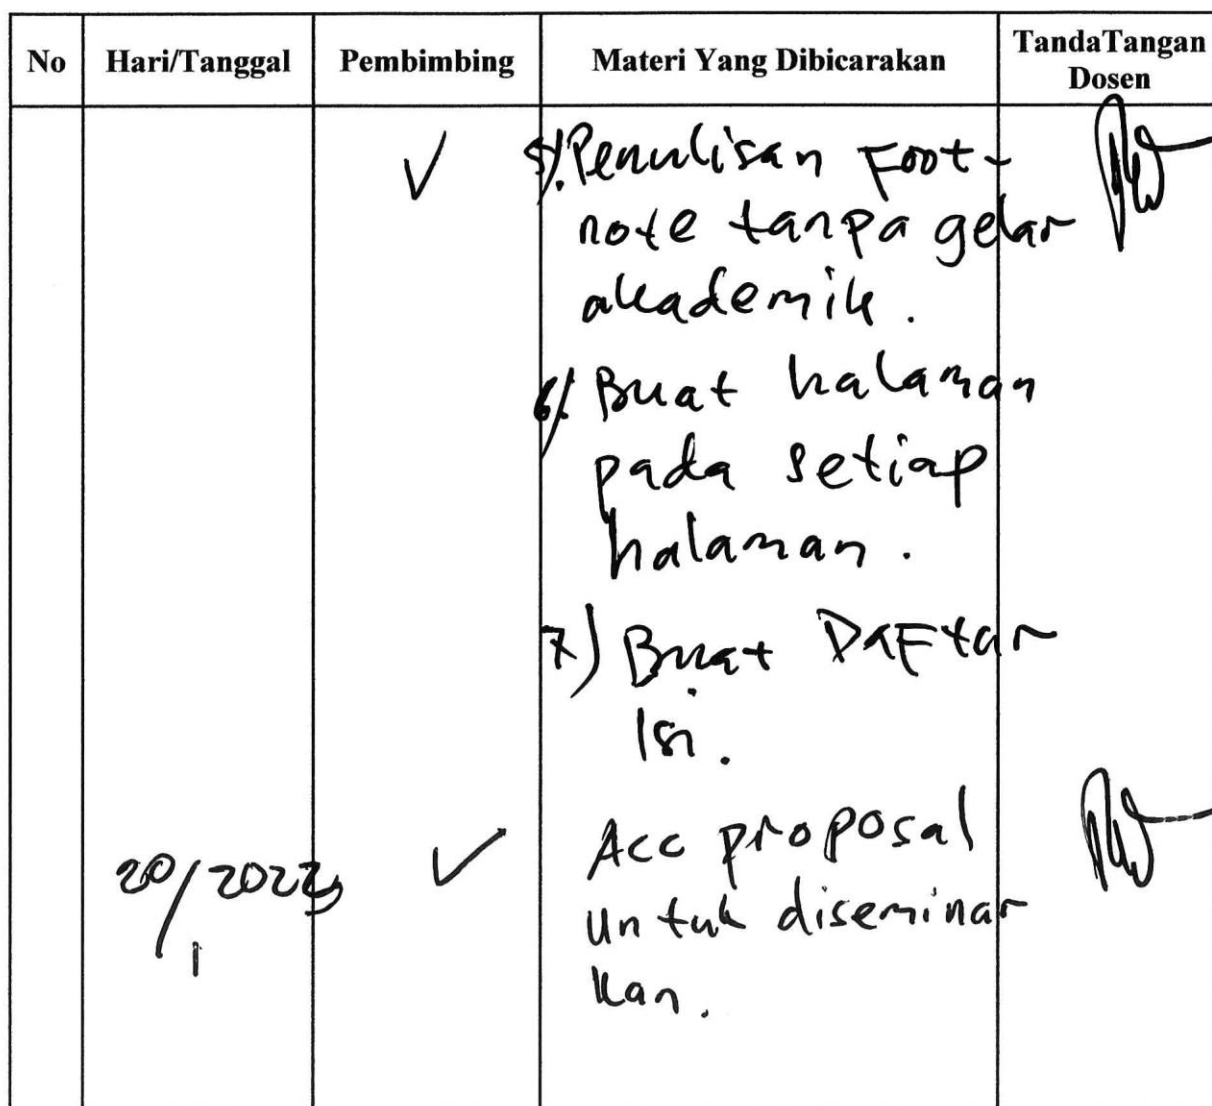 No Hari/Tanggal Pembimbing Materi Yang Dibicarakan TandaTangan Dosen
5). Penulisan Foot-
note tanpa gelar
akademik.
6) Buat halaman
pada setiap
halaman.
7) Buat Daftar
Isi.
20/1 2023 Acc proposal
untuk diseminar
kan.